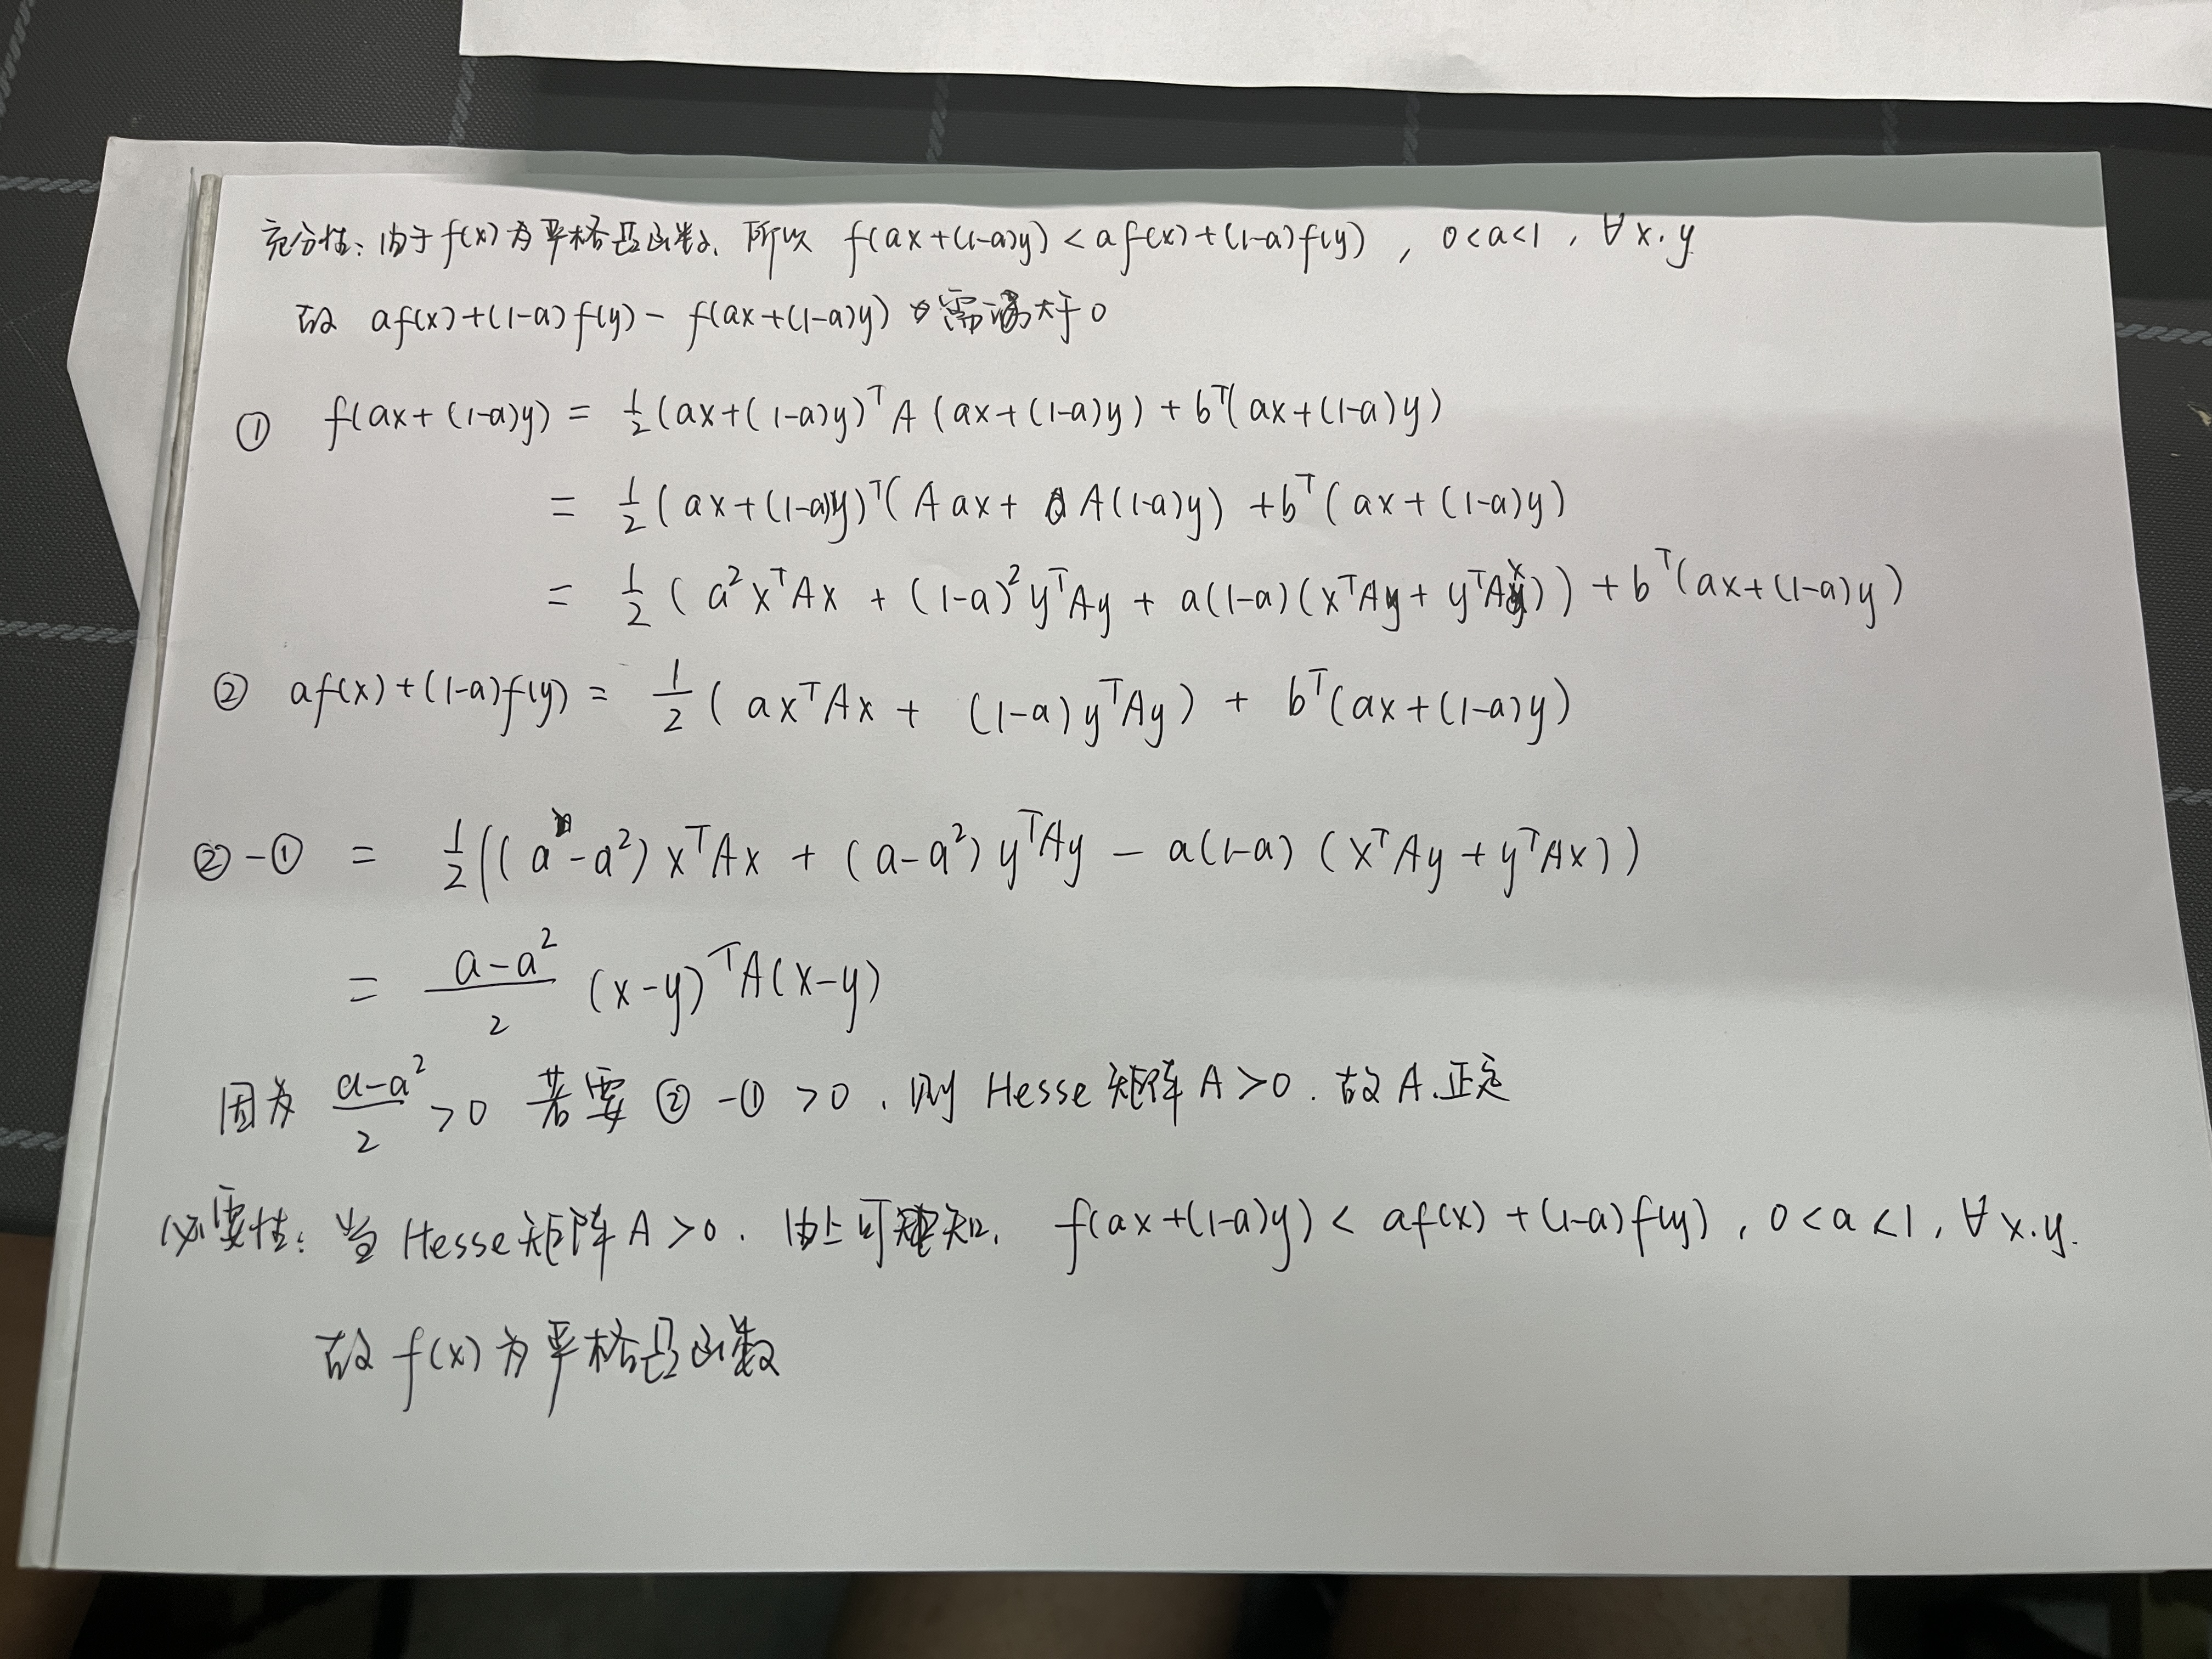 充分性：由于 f(x) 为严格凸函数, 所以 f(ax+(1-a)y) < af(x)+(1-a)f(y) , 0<a<1 , ∀x.y
故 af(x)+(1-a)f(y) - f(ax+(1-a)y) 需大于0
① f(ax+(1-a)y) = 1/2 (ax+(1-a)y)ᵀA(ax+(1-a)y) + bᵀ(ax+(1-a)y)
= 1/2 (ax+(1-a)y)ᵀ(Aax + A(1-a)y) + bᵀ(ax+(1-a)y)
= 1/2 (a²xᵀAx + (1-a)²yᵀAy + a(1-a)(xᵀAy + yᵀAx)) + bᵀ(ax+(1-a)y)
② af(x)+(1-a)f(y) = 1/2 (axᵀAx + (1-a)yᵀAy) + bᵀ(ax+(1-a)y)
②-① = 1/2((a-a²)xᵀAx + (a-a²)yᵀAy - a(1-a)(xᵀAy + yᵀAx))
= (a-a²)/2 (x-y)ᵀA(x-y)
因为 (a-a²)/2 >0 若要 ②-① >0 , 则 Hesse 矩阵 A>0 . 故 A 正定
必要性：当 Hesse 矩阵 A>0 . 由上可知, f(ax+(1-a)y) < af(x)+(1-a)f(y) , 0<a<1 , ∀x.y.
故 f(x) 为严格凸函数